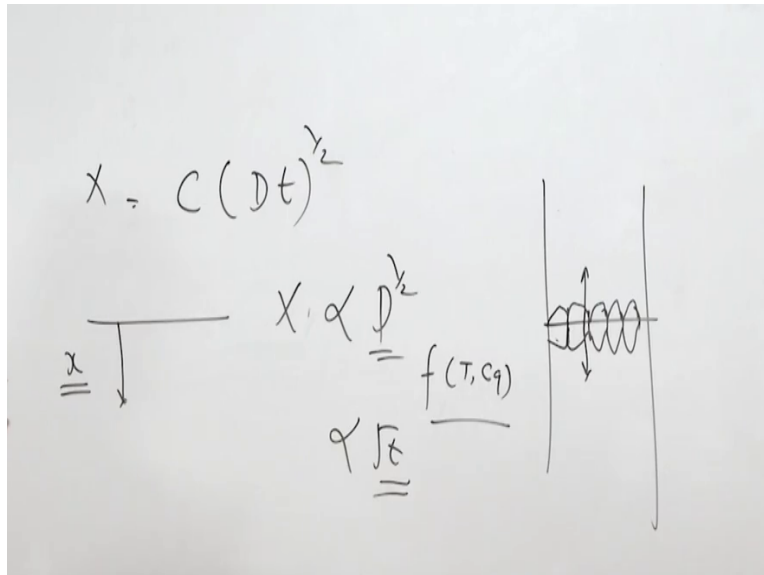 X = C (Dt)^1/2
X ∝ D^1/2
x
f (T, Cq)
∝ √t